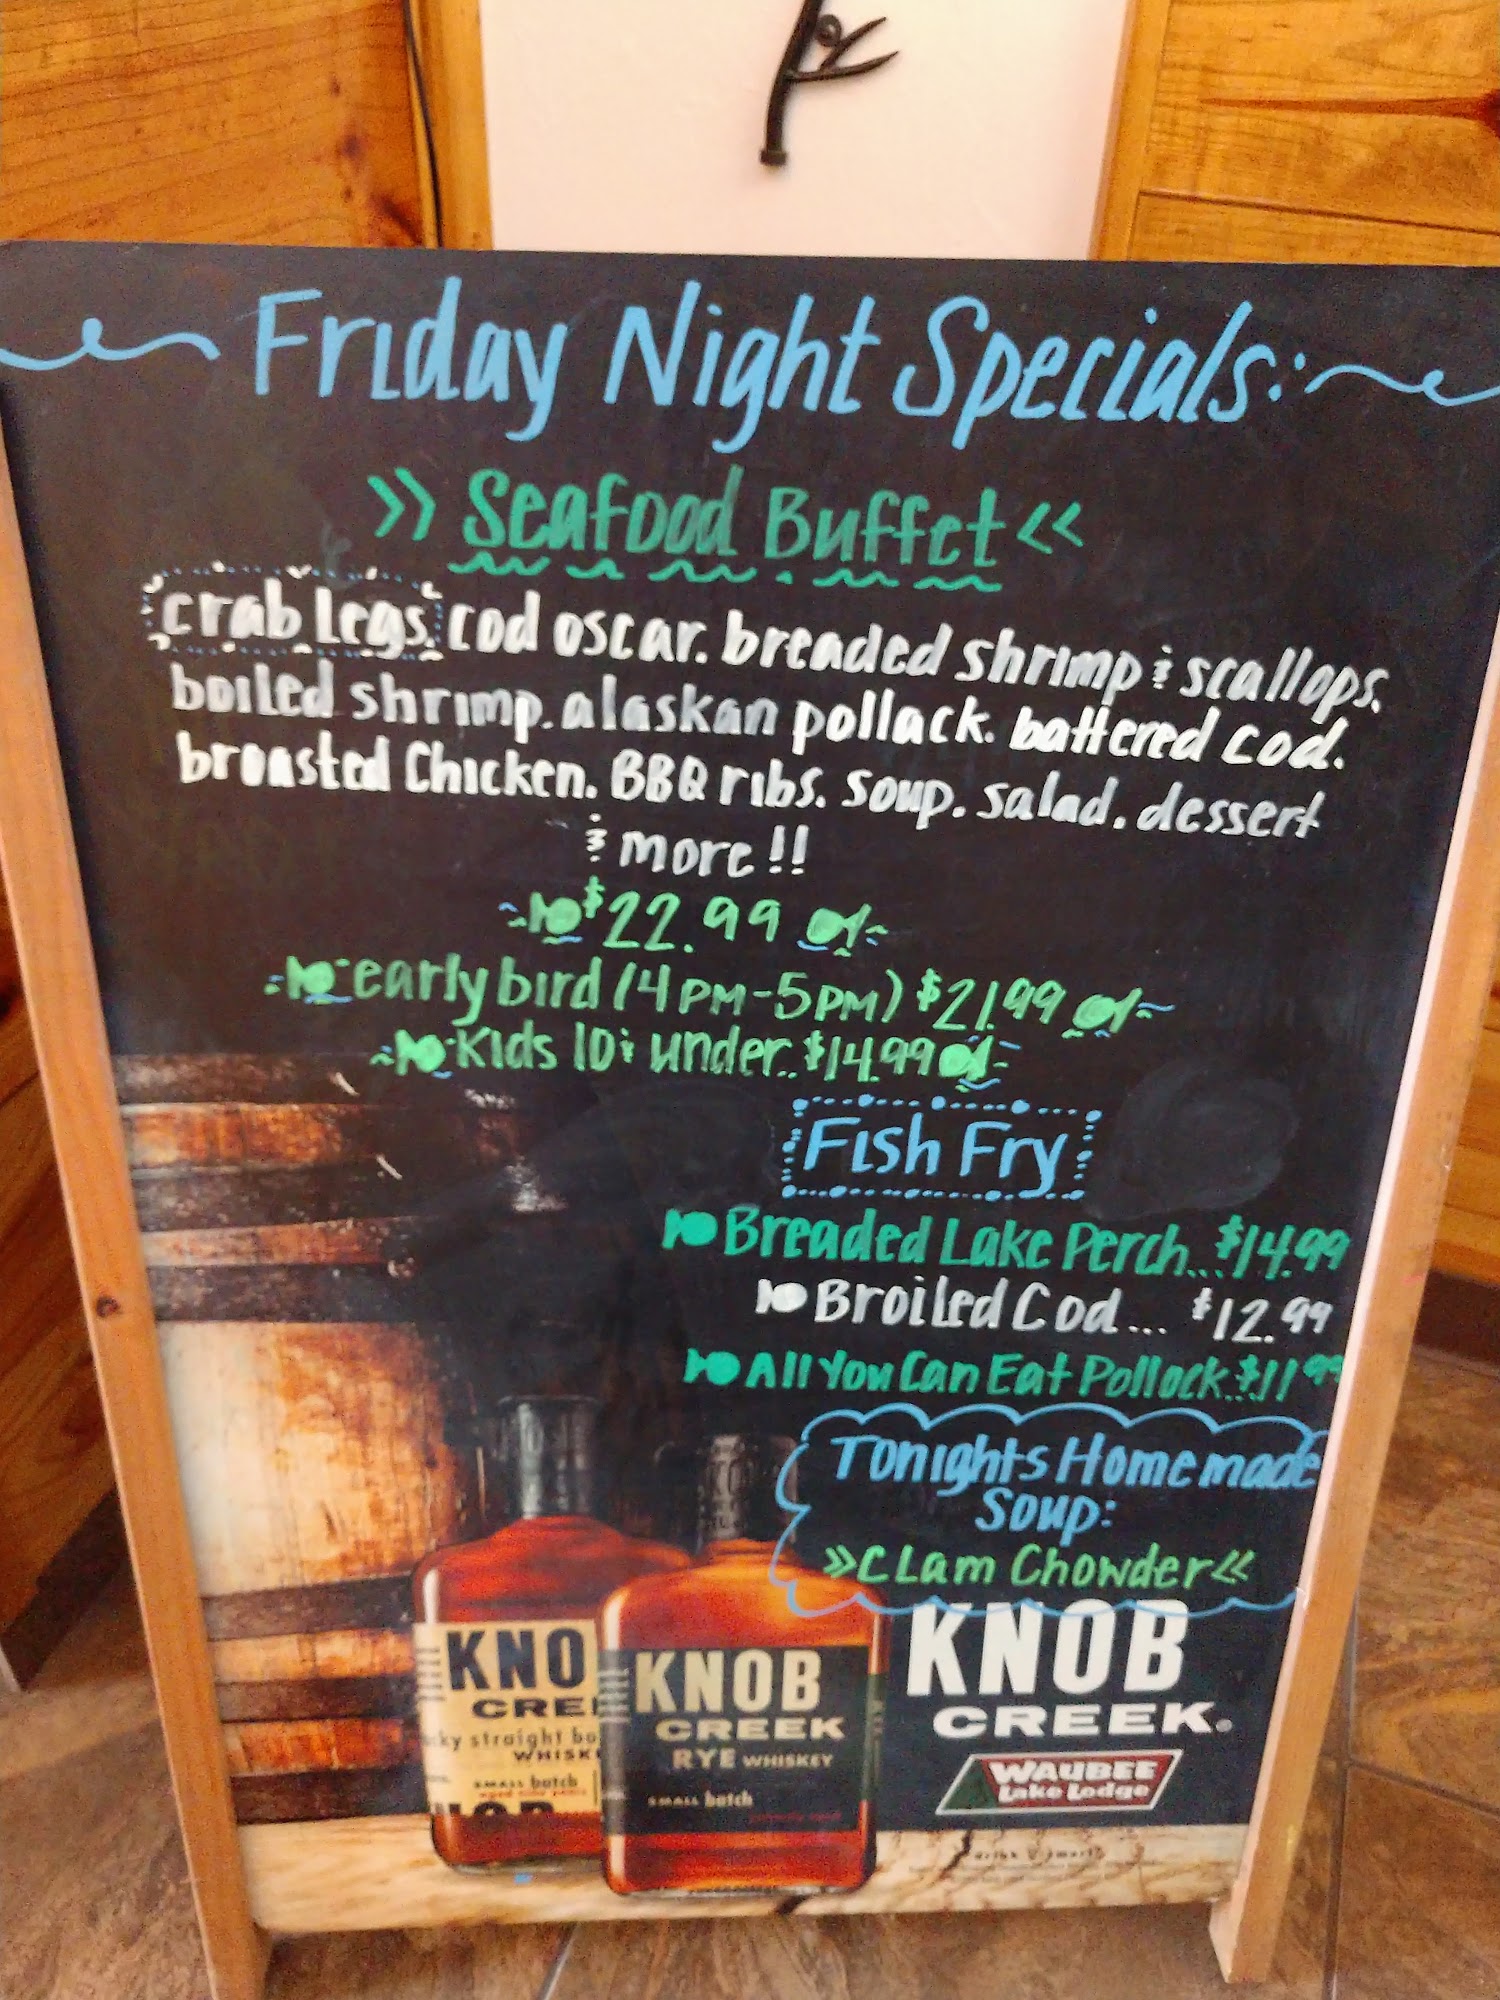 Friday Night Specials:
>> Seafood Buffet <<
crab legs. cod oscar. breaded shrimp & scallops.
boiled shrimp. alaskan pollack. battered cod.
broasted Chicken. BBQ ribs. soup. salad. dessert
& more!!
$22.99
early bird (4PM-5PM) $21.99
Kids 10 & under.. $14.99
Fish Fry
Breaded Lake Perch... $14.99
Broiled Cod... $12.99
All You Can Eat Pollock..$11.99
Tonights Homemade
Soup:
>> Clam Chowder <<
KNOB
CREEK®
WAUBEE
Lake Lodge
KNO
CREE
straight
WHISK
SMALL batch
KNOB
CREEK
RYE WHISKEY
SMALL batch
drink smart